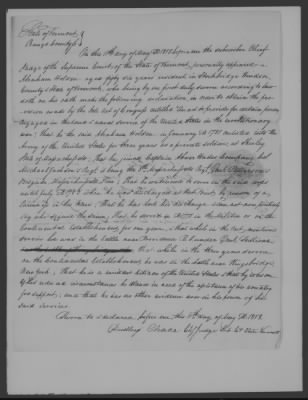 State of Vermont }
Orange County }
On this 8th day of May AD. 1818, before me the subscriber Chief
Judge of the Supreme Court, of the State of Vermont, personally appeared
Abraham Holden aged fifty six years resident in Stockbridge Windsor
County & State of Vermont, who being by me first duly sworn according to law
doth on his oath make the following declaration, in order to obtain the pro-
vision made by the late act of congress entitled "An act to provide for certain persons
engaged in the land & naval service of the United States in the revolutionary
war; That he the said Abraham Holden in January AD 1777 enlisted into the
Army of the United States for three years as a private soldier, at Shirley
State of Massachusetts, that he joined Captain Company, but
Michael Jacksons Regt. being the 8th Massachusetts Regt.
Brigade, Massachusetts Line; That he continued to serve in the said corps
until July when he was discharged at West Point by reason of a
in the knee; That he has lost his discharge
that he served in 1776 in the militia or in the
Continental Establishment, for one year, that while in the last mentioned
service he was in the battle near under Genl. Sullivan
that while in the three years service
on the Continental Establishment, he was in the battle near Kingsbridge,
New York; That he is a resident citizen of the United States & that by reason
of his reduced circumstances he stands in need of the assistance of his country
for support; and that he has no other evidence now in his power of his
said services.
Sworn to & declared before me, this 8th day of May AD. 1818.
Dudley Chase Chf. Judge Sup. Ct. State Vermont